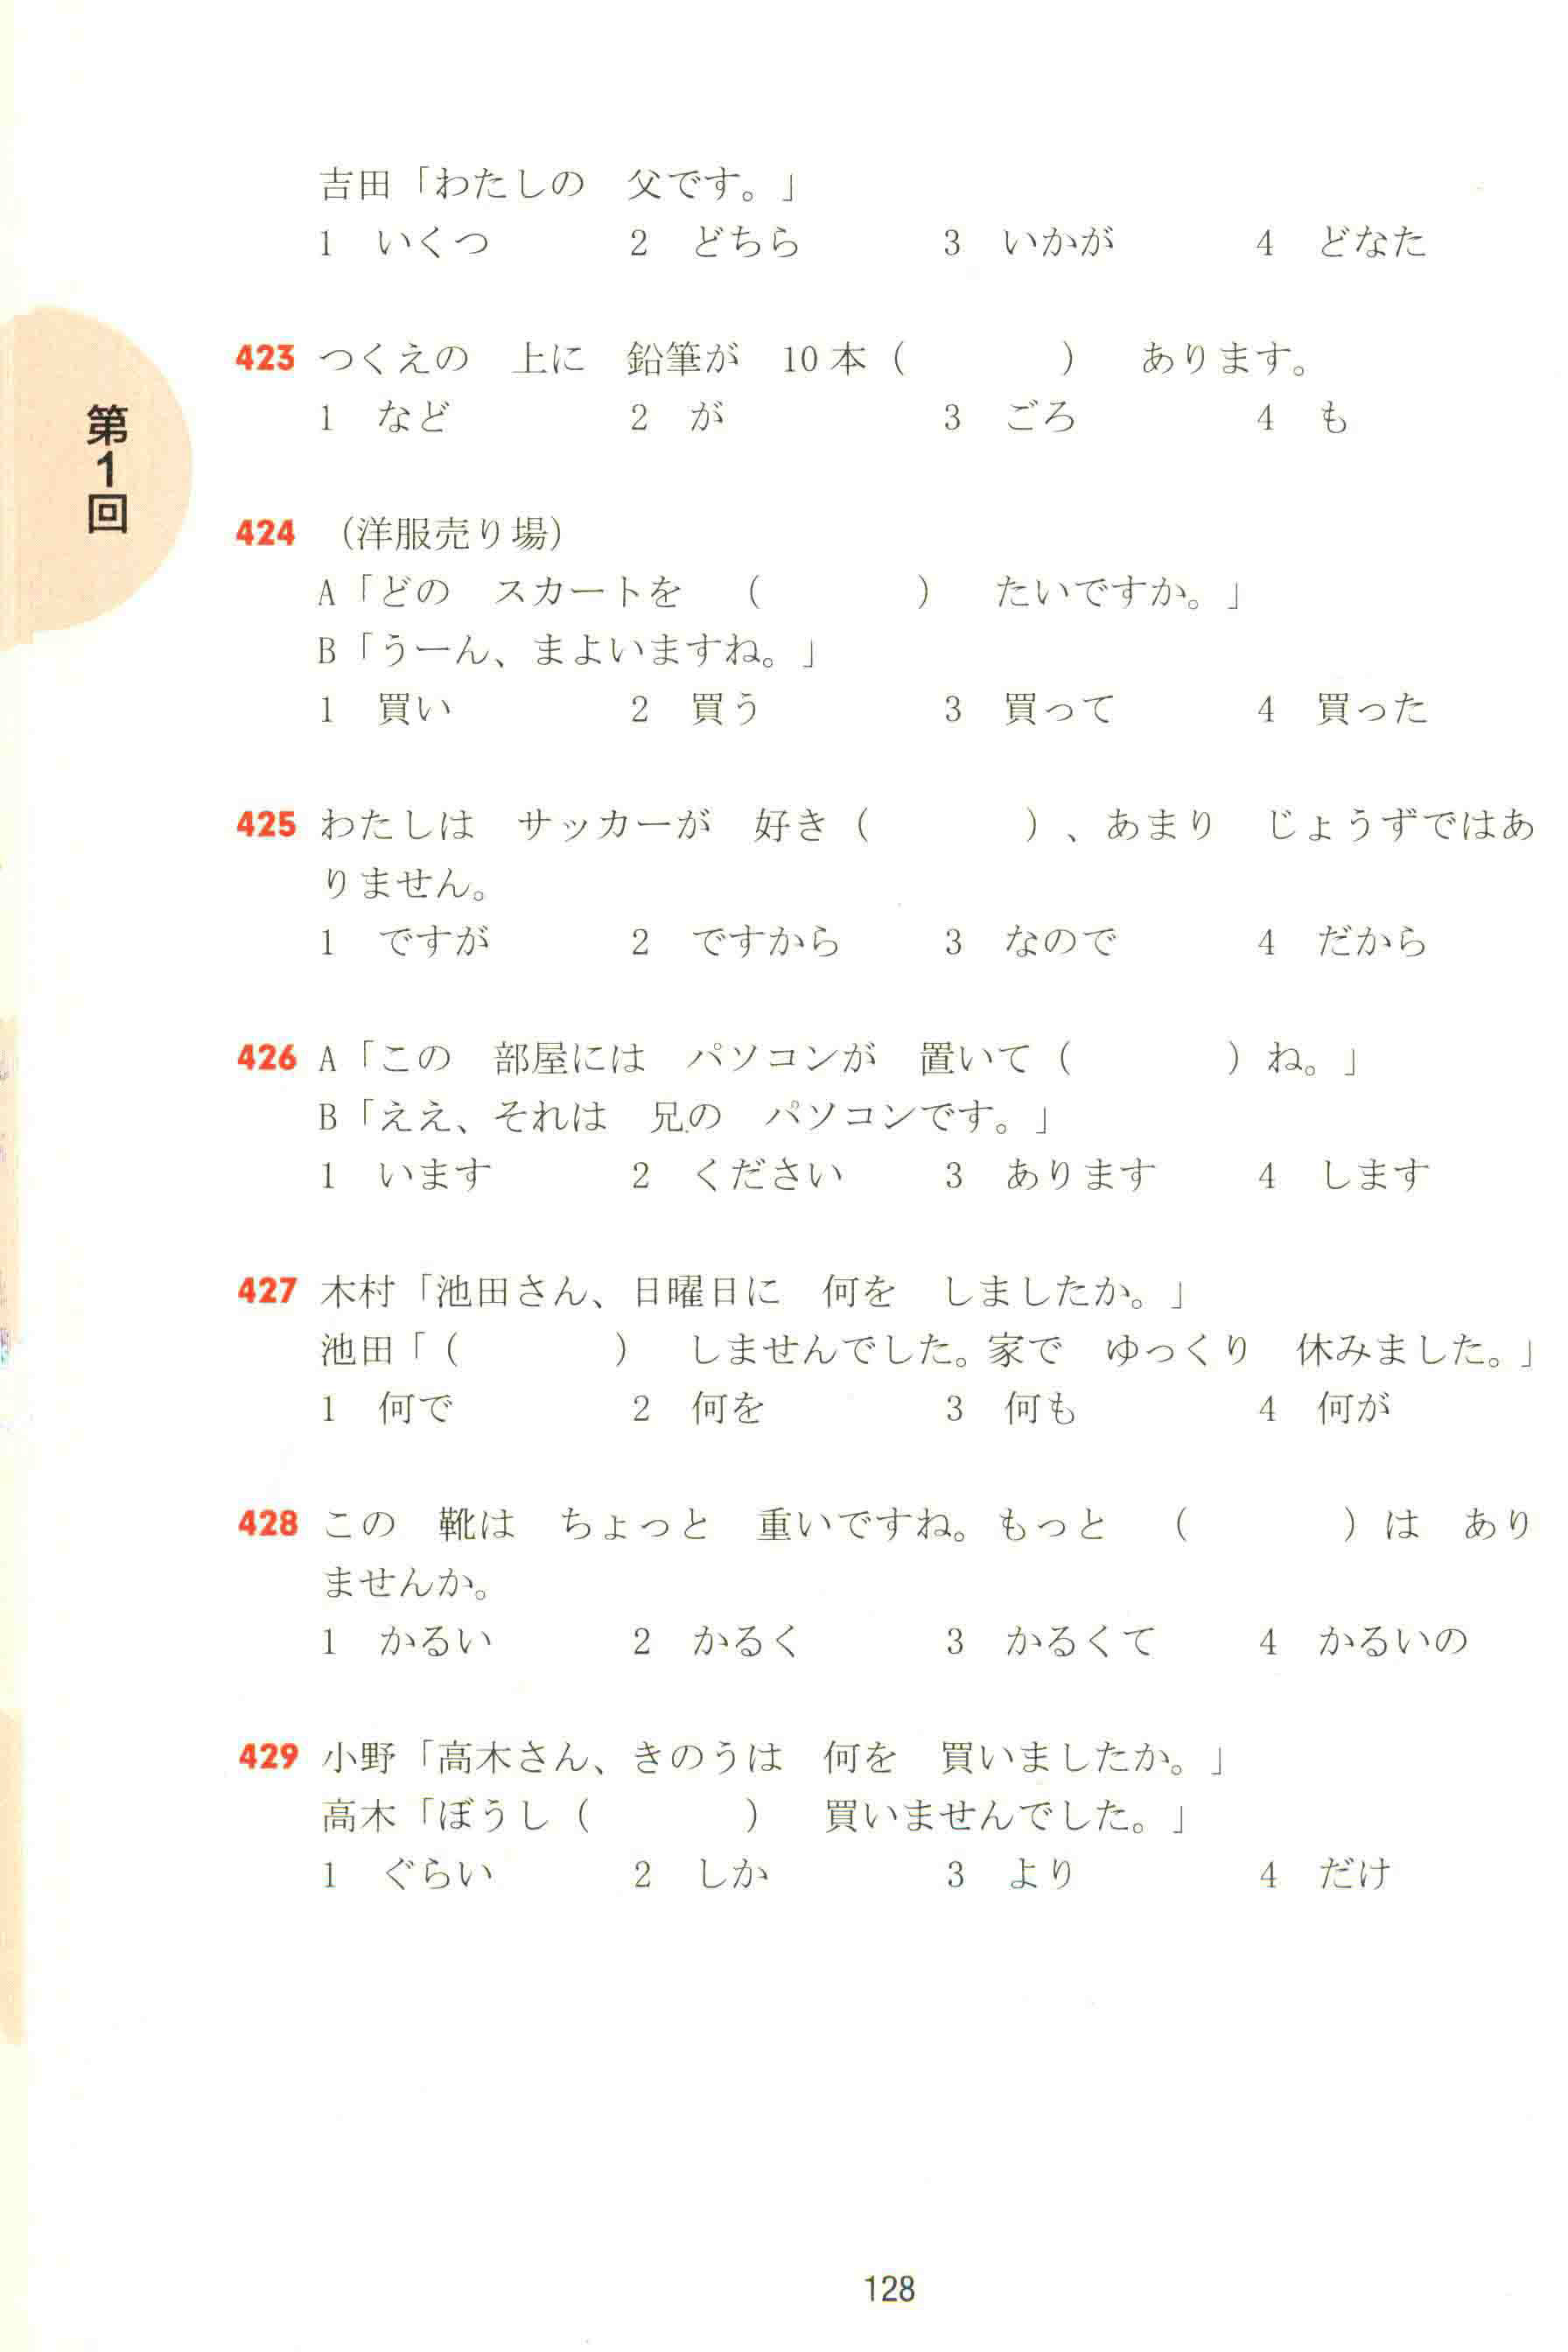 吉田「わたしの　父です。」
1　いくつ　2　どちら　3　いかが　4　どなた
第1回
423 つくえの　上に　鉛筆が　10本（　　　）　あります。
1　など　2　が　3　ごろ　4　も
424 （洋服売り場）
A「どの　スカートを　（　　　）　たいですか。」
B「うーん、まよいますね。」
1　買い　2　買う　3　買って　4　買った
425 わたしは　サッカーが　好き（　　　）、あまり　じょうずではあ
りません。
1　ですが　2　ですから　3　なので　4　だから
426 A「この　部屋には　パソコンが　置いて（　　　）ね。」
B「ええ、それは　兄の　パソコンです。」
1　います　2　ください　3　あります　4　します
427 木村「池田さん、日曜日に　何を　しましたか。」
池田「（　　　）　しませんでした。家で　ゆっくり　休みました。」
1　何で　2　何を　3　何も　4　何が
428 この　靴は　ちょっと　重いですね。もっと　（　　　）は　あり
ませんか。
1　かるい　2　かるく　3　かるくて　4　かるいの
429 小野「高木さん、きのうは　何を　買いましたか。」
高木「ぼうし（　　　）　買いませんでした。」
1　ぐらい　2　しか　3　より　4　だけ
128